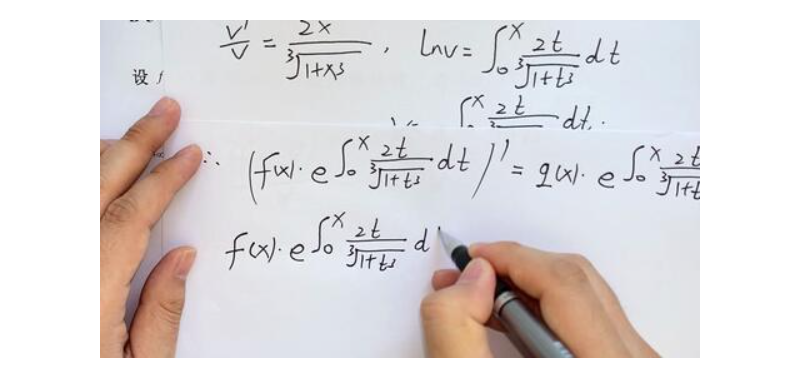 v'/v = 2x/∛(1+x³), lnv = ∫₀ˣ 2t/∛(1+t³) dt
设 f
∫₀ˣ 2t dt.
∴ (f(x)·e ∫₀ˣ 2t/∛(1+t³) dt)' = q(x)·e ∫₀ˣ 2t/∛(1+t
f(x)·e ∫₀ˣ 2t/∛(1+t³) d